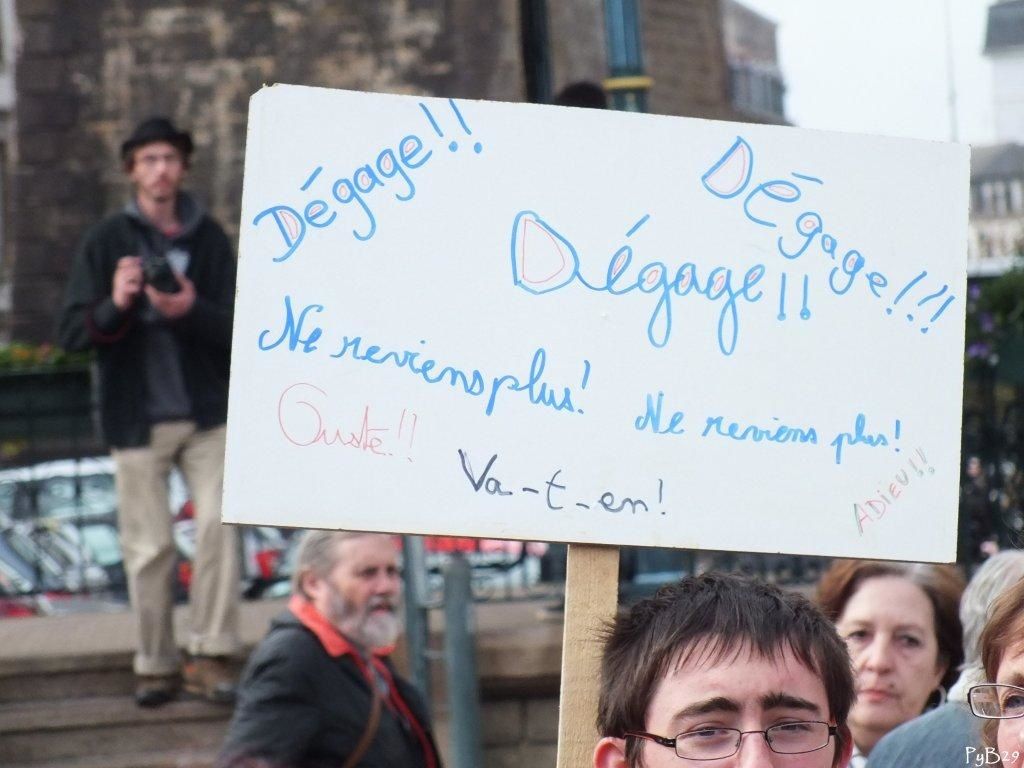 Dégage!!
Dégage!!
Dégage!!!
Ne reviens plus!
Ne reviens plus!
Ouste!!
Va-t-en!
ADiEU!!
PyB29